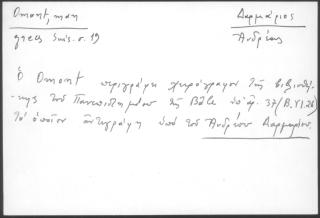 Omont, man Δαρμάριος
grecs Suis. σ. 19 Ἀνδρέας
Ὁ Omont περιγράφει χειρόγραφον τῆς βιβλιοθή-
κης τοῦ Πανεπιστημίου τῆς Βάλε ὑπ' ἀρ. 37 (B.VI.26)
Τὸ ὁποῖον ἀντεγράφη ὑπὸ τοῦ Ἀνδρέου Δαρμαρίου.